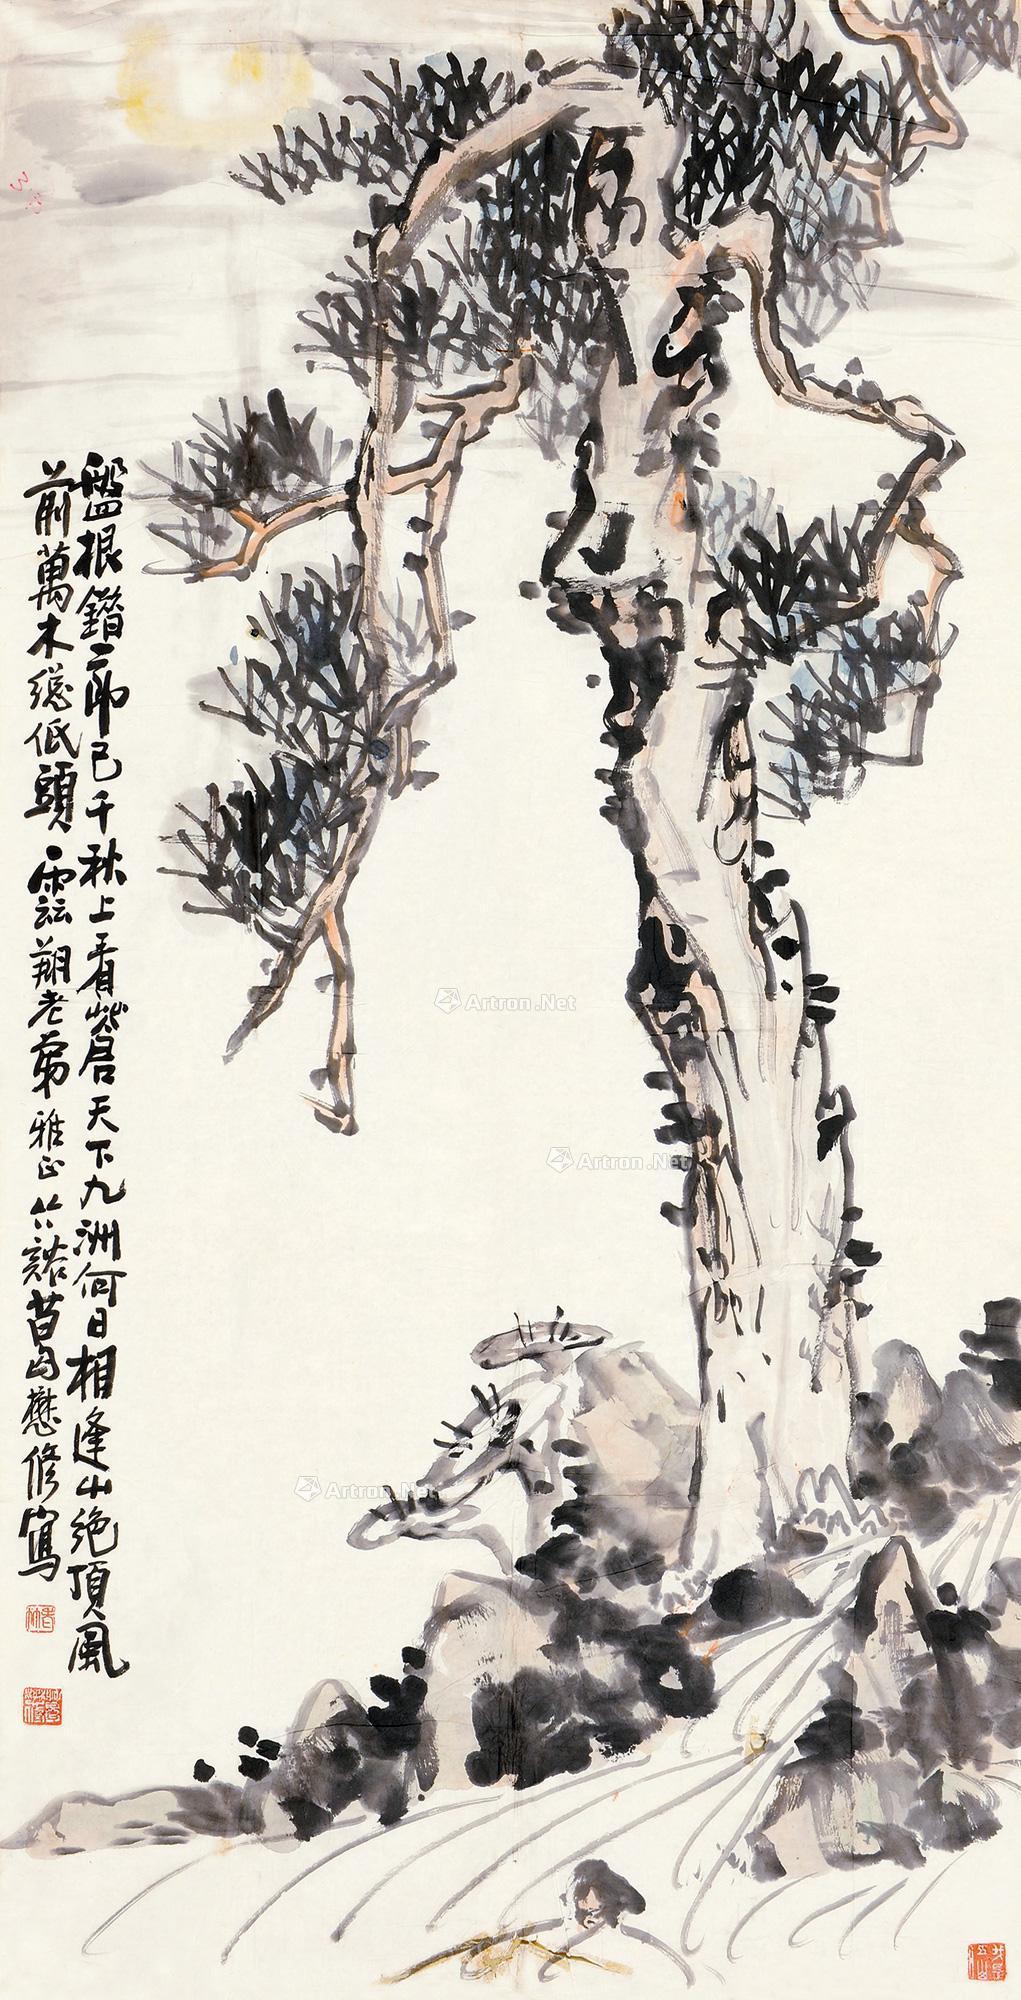 盤根錯節已千秋上看蒼天下九洲何日相逢山絕頂風
前萬木總低頭雲翔老弟雅正谿懋修寫
Artron.Net
Artron.Net
Artron.Net